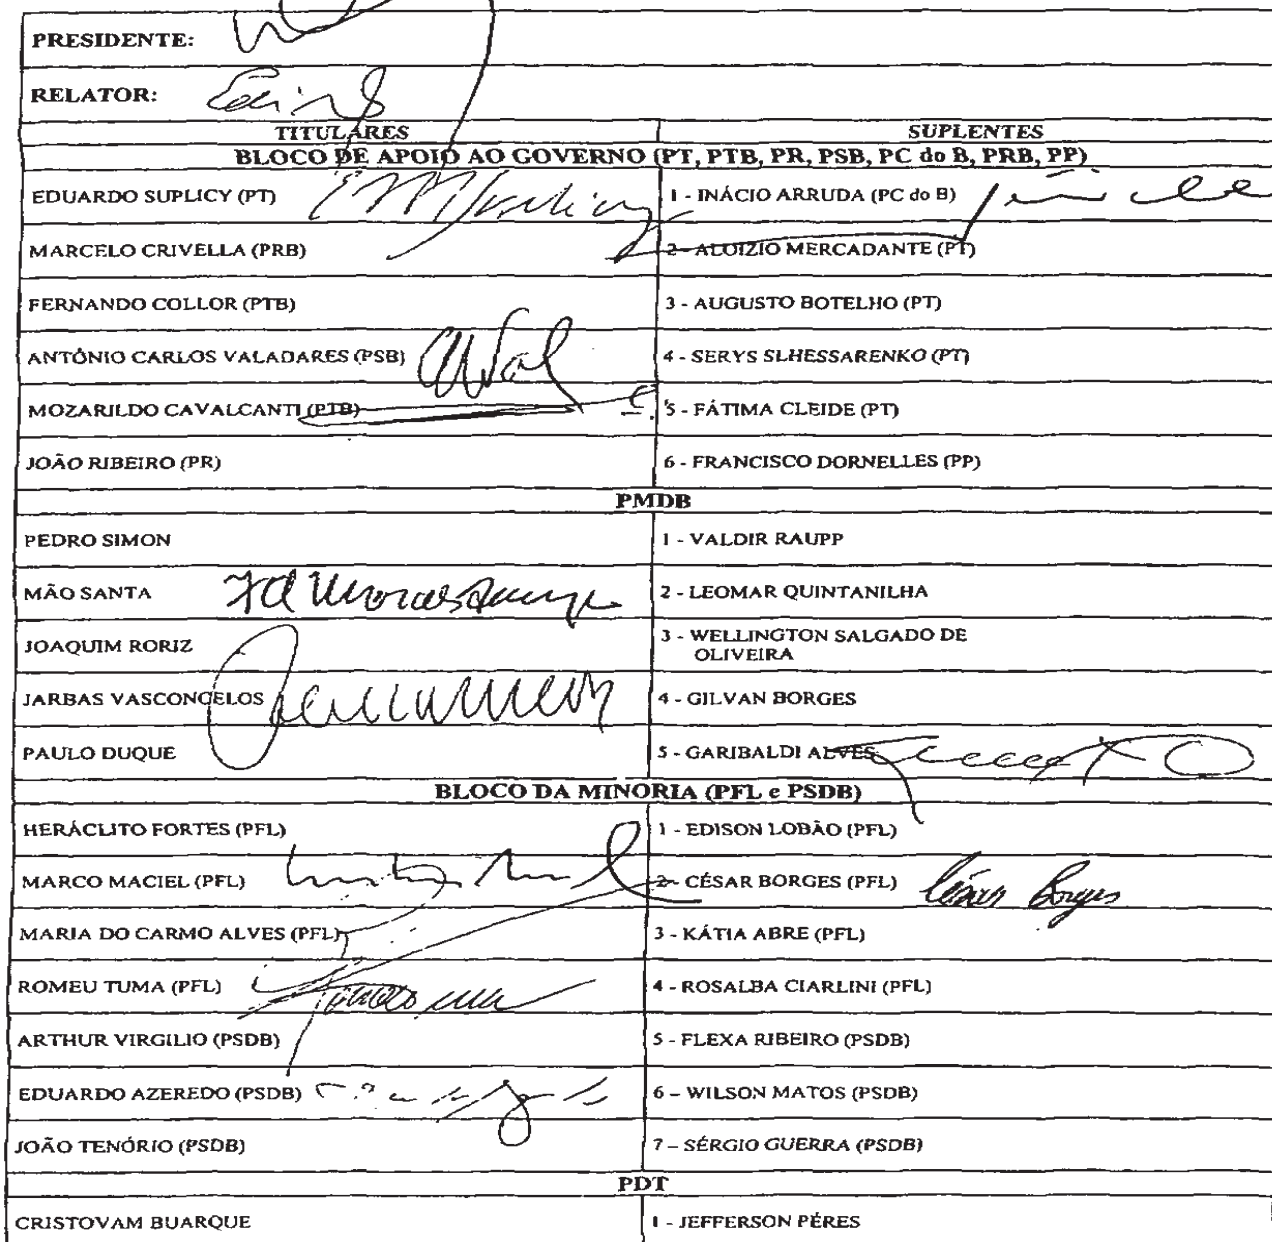 PRESIDENTE:
RELATOR:
TITULARES SUPLENTES
BLOCO DE APOIO AO GOVERNO (PT, PTB, PR, PSB, PC do B, PRB, PP)
EDUARDO SUPLICY (PT) 1 - INÁCIO ARRUDA (PC do B)
MARCELO CRIVELLA (PRB) 2- ALOIZIO MERCADANTE (PT)
FERNANDO COLLOR (PTB) 3 - AUGUSTO BOTELHO (PT)
ANTÔNIO CARLOS VALADARES (PSB) 4 - SERYS SLHESSARENKO (PT)
MOZARILDO CAVALCANTI (PTB) 5 - FÁTIMA CLEIDE (PT)
JOÃO RIBEIRO (PR) 6 - FRANCISCO DORNELLES (PP)
PMDB
PEDRO SIMON 1 - VALDIR RAUPP
MÃO SANTA 2 - LEOMAR QUINTANILHA
JOAQUIM RORIZ 3 - WELLINGTON SALGADO DE
OLIVEIRA
JARBAS VASCONCELOS 4 - GILVAN BORGES
PAULO DUQUE 5 - GARIBALDI ALVES
BLOCO DA MINORIA (PFL e PSDB)
HERÁCLITO FORTES (PFL) 1 - EDISON LOBÃO (PFL)
MARCO MACIEL (PFL) 2- CÉSAR BORGES (PFL) César Borges
MARIA DO CARMO ALVES (PFL) 3 - KÁTIA ABRE (PFL)
ROMEU TUMA (PFL) 4 - ROSALBA CIARLINI (PFL)
ARTHUR VIRGILIO (PSDB) 5 - FLEXA RIBEIRO (PSDB)
EDUARDO AZEREDO (PSDB) 6 – WILSON MATOS (PSDB)
JOÃO TENÓRIO (PSDB) 7 – SÉRGIO GUERRA (PSDB)
PDT
CRISTOVAM BUARQUE 1 - JEFFERSON PÉRES